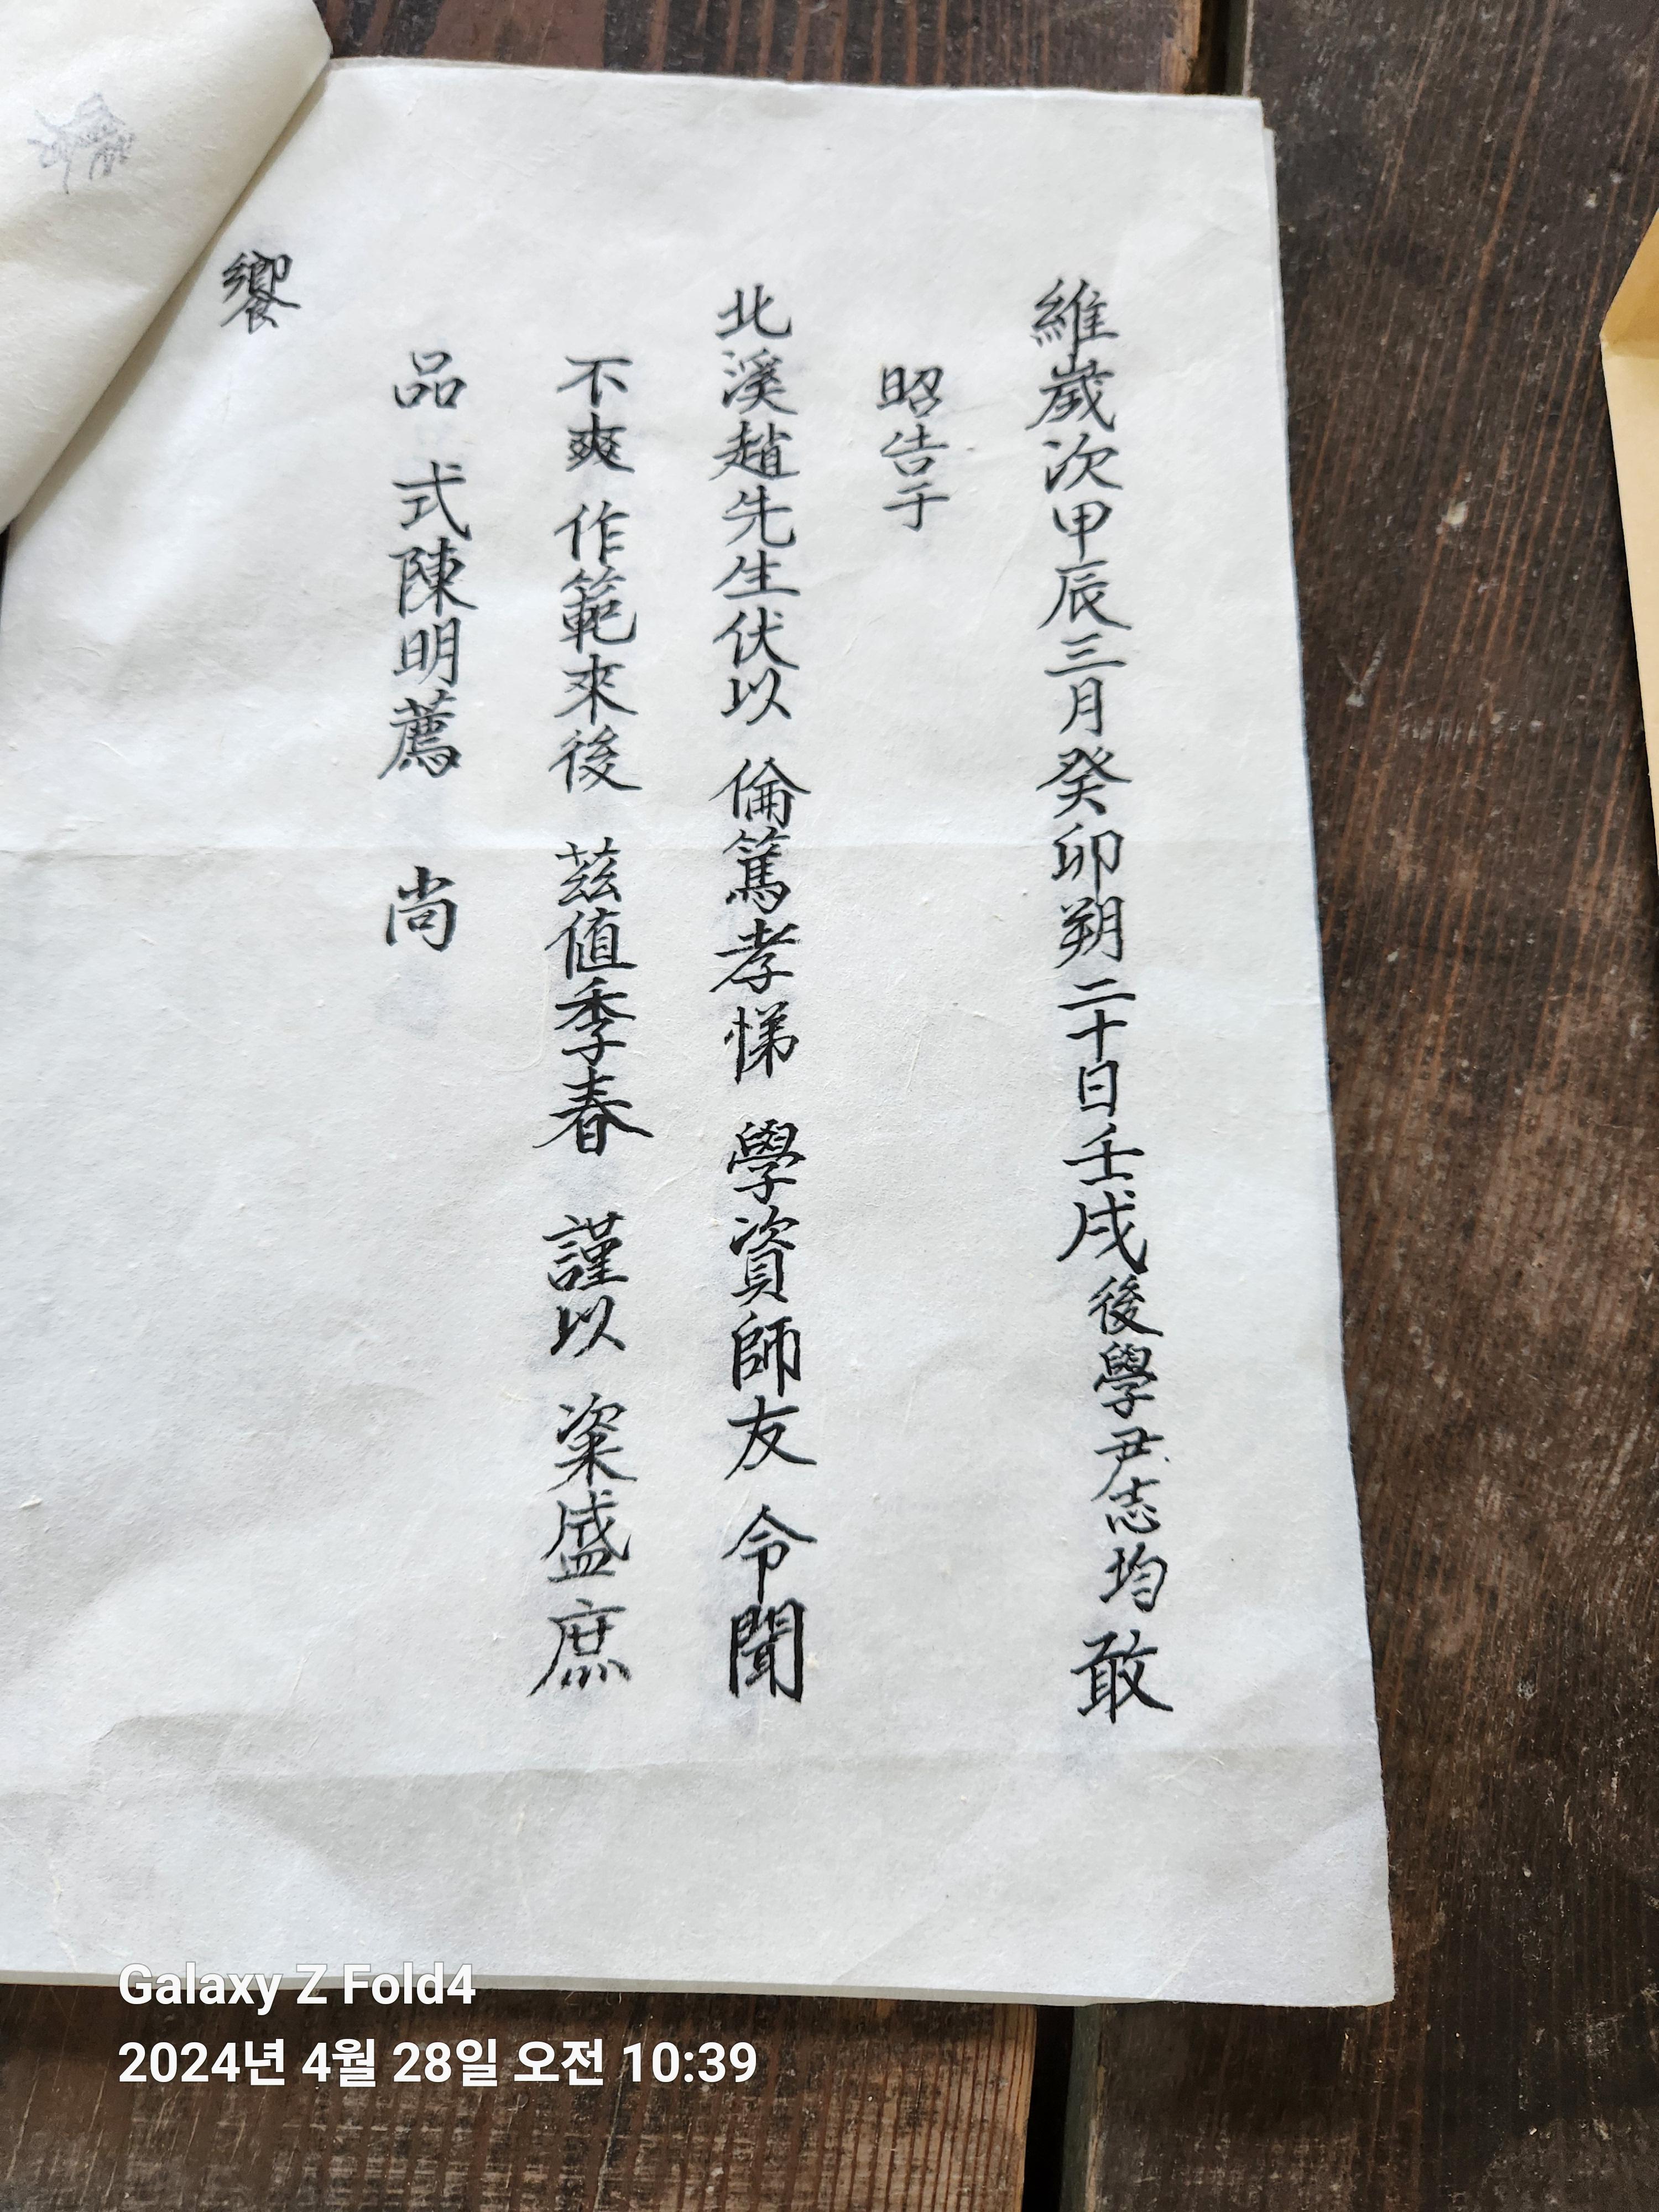 維歲次甲辰三月癸卯朔二十日壬戌後學尹志均 敢
昭告于
北溪趙先生伏以 倫篤孝悌 學資師友 令聞
不爽 作範來後 茲値季春 謹以 粢盛庶
品 式陳明薦 尚
饗
Galaxy Z Fold4
2024년 4월 28일 오전 10:39